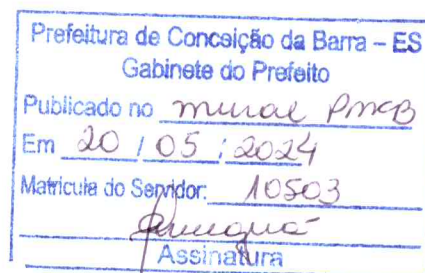 Prefeitura de Conceição da Barra – ES
Gabinete do Prefeito
Publicado no mural PMCB
Em 20 / 05 / 2024
Matricula do Servidor: 10503
Assinatura